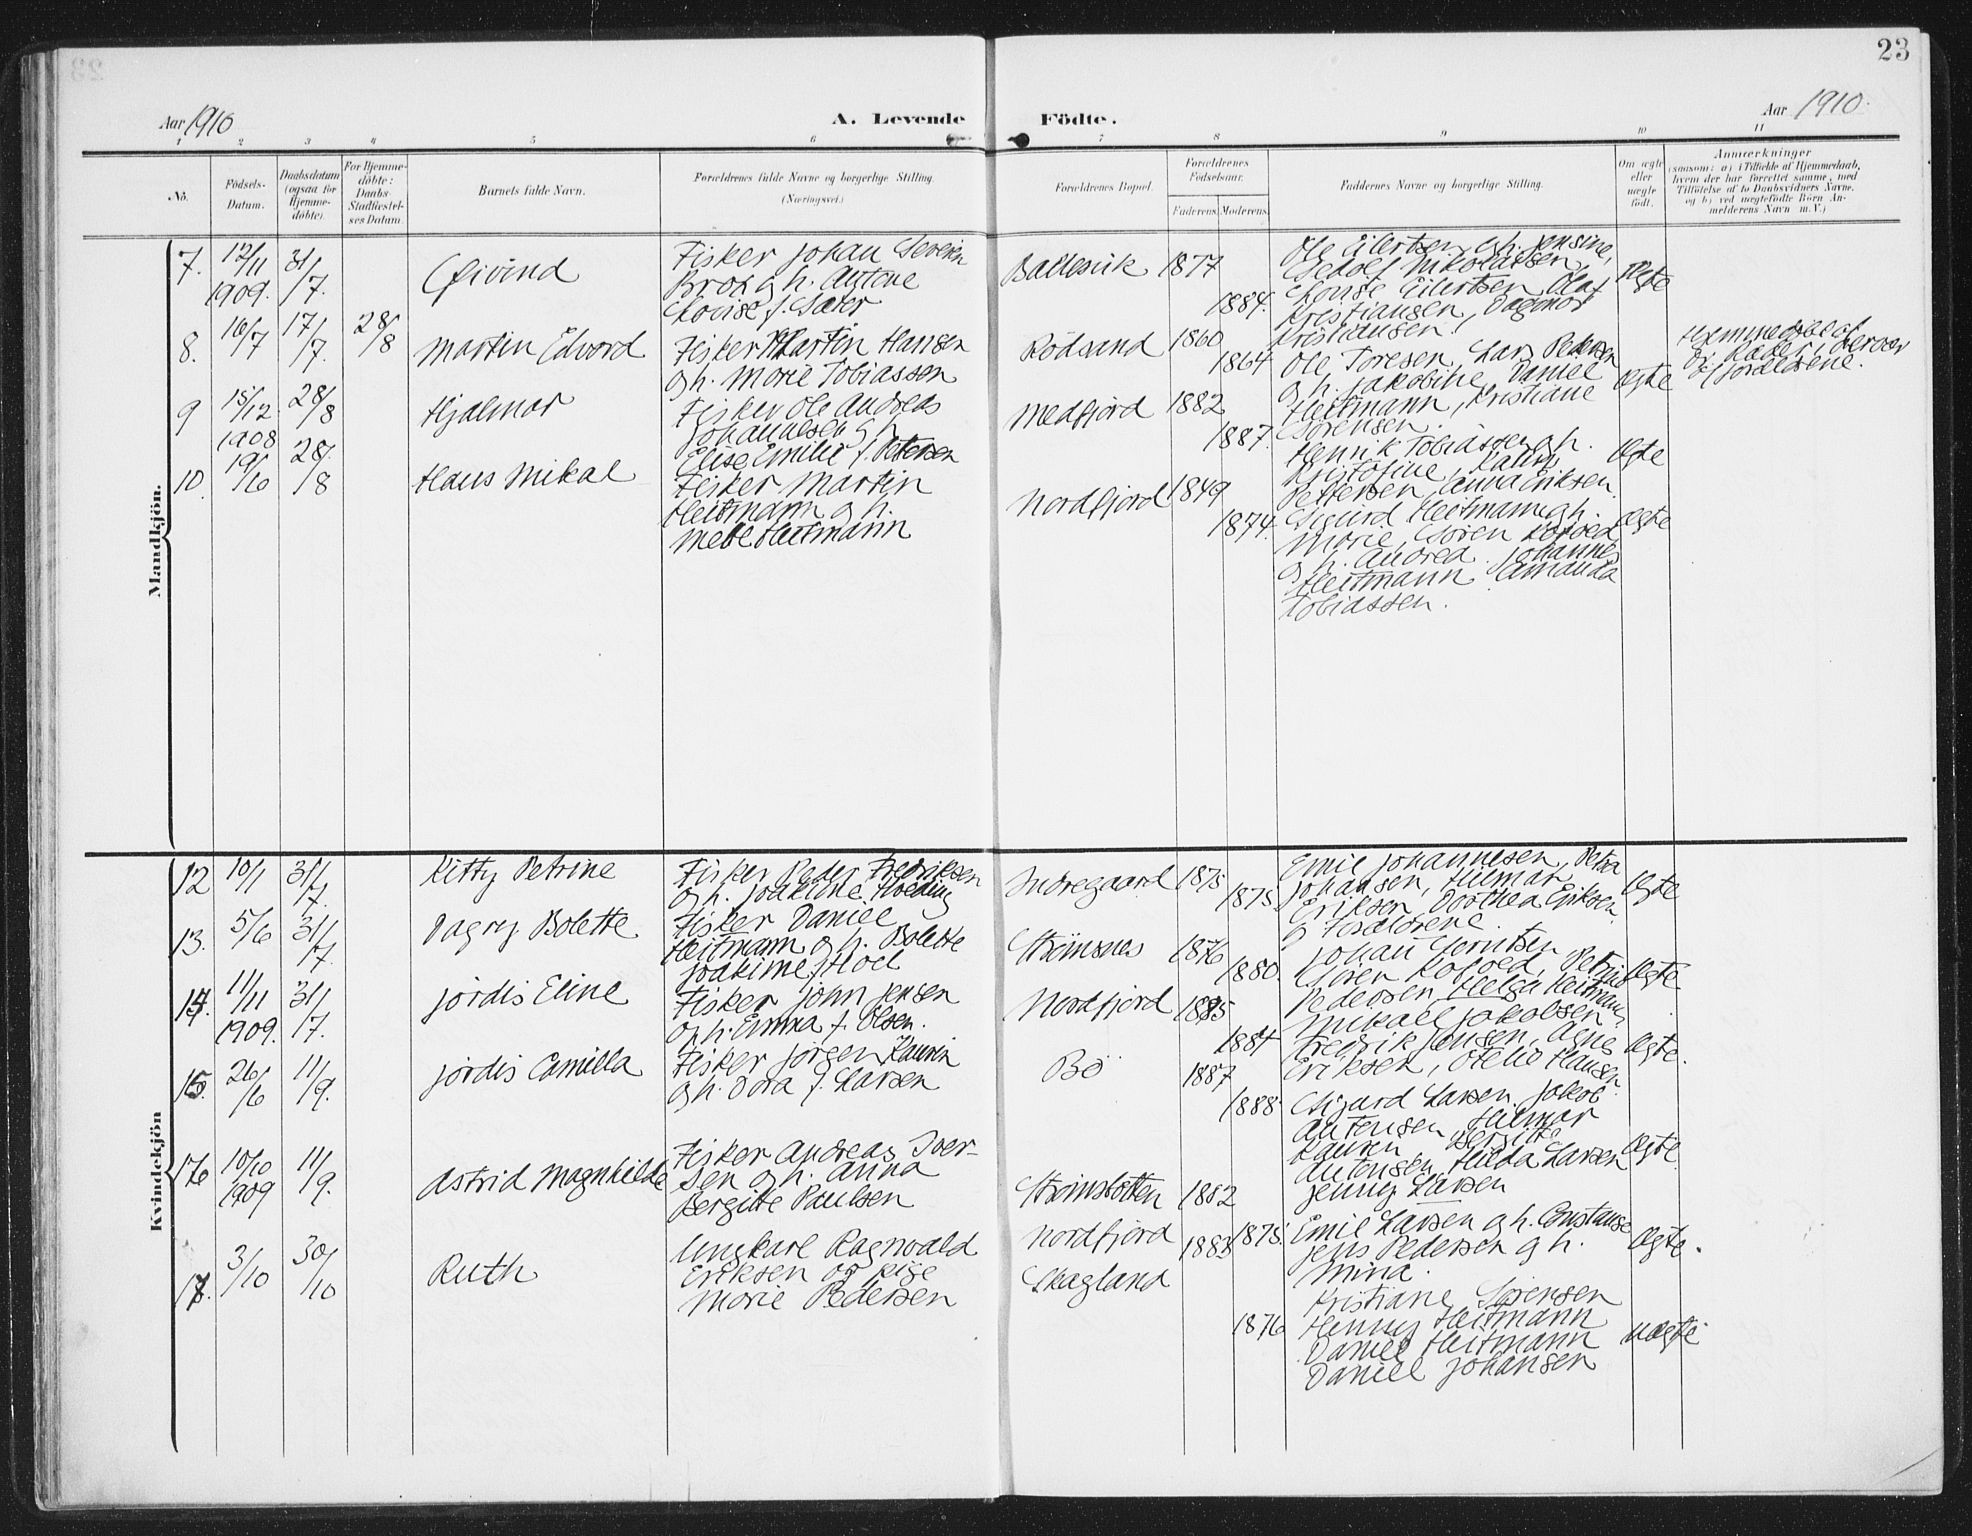 23
Aar 1910
A. Levende Födte.
Aar 1910.
1 2 3 4 5 6 7 8 9 10 11
No.
Födsels-Datum.
Daabsdatum (ogsaa for Hjemme-döbte)
For Hjemme-döbte: Daabs-Stadfæstel-ses Datum.
Barnets fulde Navn.
Forældrenes fulde Navne og borgerlige Stilling.
(Næringsvei.)
Forældrenes Bopæl.
Forældrenes Födselsaar.
Faderens. Moderens.
Faddernes Navne og borgerlige Stilling.
Om ægte eller uægte födt.
Anmærkninger
(saasom: a) i Tilfælde af Hjemmedaab,
hvem der har forrettet samme, med
Tilföielse af to Daabsvidners Navne.
og b) ved uægtefödte Börn An-
melderens Navn m. V.)
Mandkjön.
7. 12/11 1909. 31/7. Øivind
Fisker Johan Severin
Brox og h. Antone
Lovise f. Sæter
1877 1884.
Ole Eilertsen og h. Jensine,
Nikolaisen,
Lovise Eilertsen, Olaf
Kristiansen, Dagmar
Kristiansen.
Ægte
8. 16/7 17/7. 28/8 Martin Edvard
Fisker Martin Hansen
og h. Marie Tobiassen
Rödsand 1860 1864
Ole Toresen, Lars Pedersen
og h. Jakobine, Daniel
Heitmann, Kristiane
Sörensen.
Ægte
Hjemmedöbt af
9 15/12 1908 28/8 Hjalmar
Fisker Ole Andreas
Johannesen og h.
Elise Emilie f. Petersen
Medfjord 1882 1887.
Henrik Tobiassen og h.
Kristofine,
Pettersen, Anna Eriksen.
Ægte
10. 19/6 28/8 Hans Mikal
Fisker Martin
Heitmann og h.
Heitmann
Nordfjord 1849 1874.
Sigurd Heitmann og h.
Marie, Sören Kofoed
og h. Andrea. Johannes
Heitmann Amanda
Tobiassen.
Ægte
Kvindekjön
12 10/1 31/7. Kitty Petrine
Fisker Peder Fredriksen
og h. Joakime
Indregaard 1875 1875.
Emil Johannesen, Petra
Johansen, Hilmar
Eriksen, Dorthea Eriksen
og Forældrene.
Ægte
13. 5/6 31/7. Dagny Bolette
Fisker Daniel
Heitmann og h. Bolette
Joakime f. Hoel
Strömsnes 1876 1880.
Johan
Sören Kofoed,
Pedersen, Helga Heitmann,
Ægte
14. 11/11 1909. 31/7. Jordis Eline
Fisker John Jensen
og h. Emma f. Olsen.
Nordfjord 1885 1884
Mikael Jakobsen
Fredrik Jensen, Agnes
Eriksen, Otelie Hansen
Ægte.
15. 26/6 11/9. Jordis Camilla
Fisker Jörgen Laurin
og h. Dora f. Larsen
Bö 1887 1888.
Sigurd Larsen, Jakob
Antonsen, Hilmar
Laurin
Antonsen, Hilda Larsen
Jenny Larsen
Ægte.
16 10/10 1909 11/9. Astrid Magnhilde
Fisker Andreas Iver-
sen og h. Anna
Bergitte Paulsen
Strömsbotten 1882 1875.
Emil Larsen og h. Constanse
Jens Pedersen og h.
Mina.
Ægte.
17. 3/10 30/10 Ruth
Ungkarl Ragnvald
Eriksen og pige
Marie Pedersen
Nordfjord 1883
Skagland 1876
Kristiane Sörensen
Henny Heitmann
Daniel Heitmann
Daniel Johansen
uægte